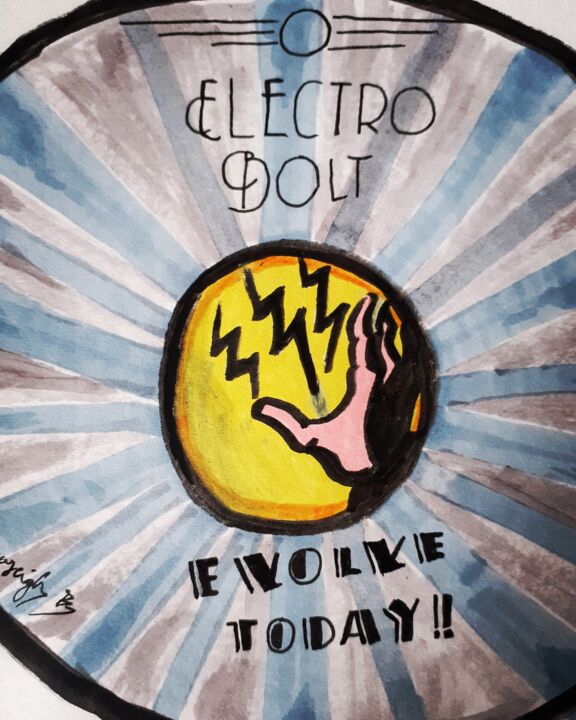 ELECTRO
BOLT
EVOLVE
TODAY!!